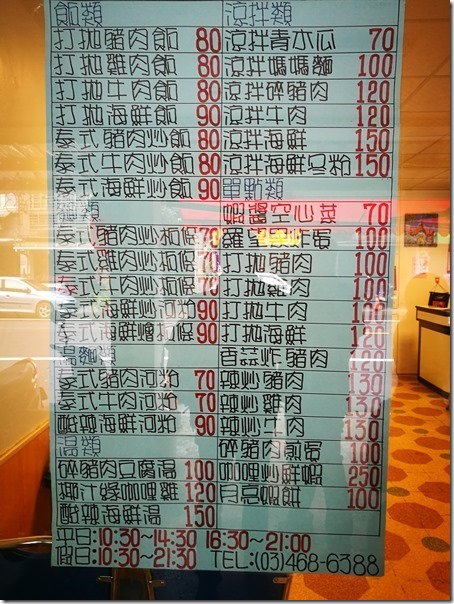 飯類
打拋豬肉飯 80
打拋雞肉飯 80
打拋牛肉飯 80
打拋海鮮飯 90
泰式豬肉炒飯 80
泰式牛肉炒飯 80
泰式海鮮炒飯 90
麵類
泰式豬肉炒板條 70
泰式雞肉炒板條 70
泰式牛肉炒板條 70
泰式海鮮炒河粉 90
泰式海鮮燴板條 90
湯麵類
泰式豬肉河粉 70
泰式牛肉河粉 70
酸辣海鮮河粉 90
湯類
碎豬肉豆腐湯 100
椰汁綠咖哩雞 120
酸辣海鮮湯 150
涼拌類
涼拌青木瓜 70
涼拌媽媽麵 100
涼拌碎豬肉 120
涼拌牛肉 120
涼拌海鮮 150
涼拌海鮮冬粉 150
單點類
蝦醬空心菜 70
羅望子炸蛋 100
打拋豬肉 100
打拋雞肉 100
打拋牛肉 100
打拋海鮮 120
香蒜炸豬肉 120
辣炒豬肉 130
辣炒雞肉 130
辣炒牛肉 130
碎豬肉煎蛋 100
咖哩炒鮮蝦 250
月亮蝦餅 100
平日:10:30~14:30 16:30~21:00
假日:10:30~21:30 TEL:(03)468-6388